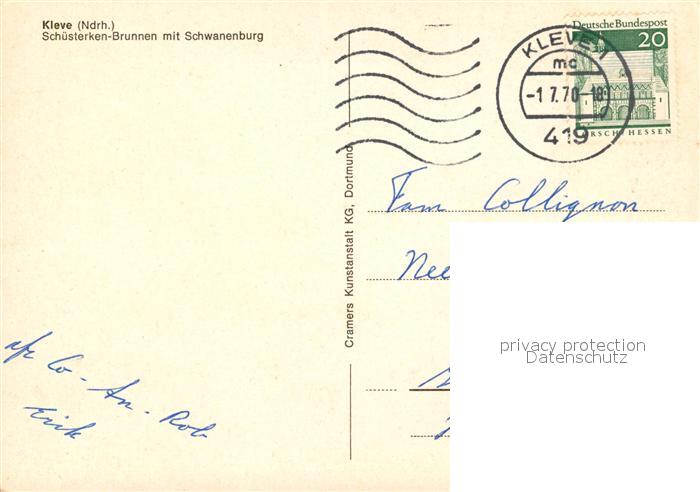 Kleve (Ndrh.)
Schüsterken-Brunnen mit Schwanenburg
Deutsche Bundespost
20
KLEVE 1
mc
-1.7.70-18
419
LORSCH/HESSEN
Cramers Kunstanstalt KG, Dortmund
Fam Collignon
Nee
privacy protection
Datenschutz
Co - An - Rob
Erik